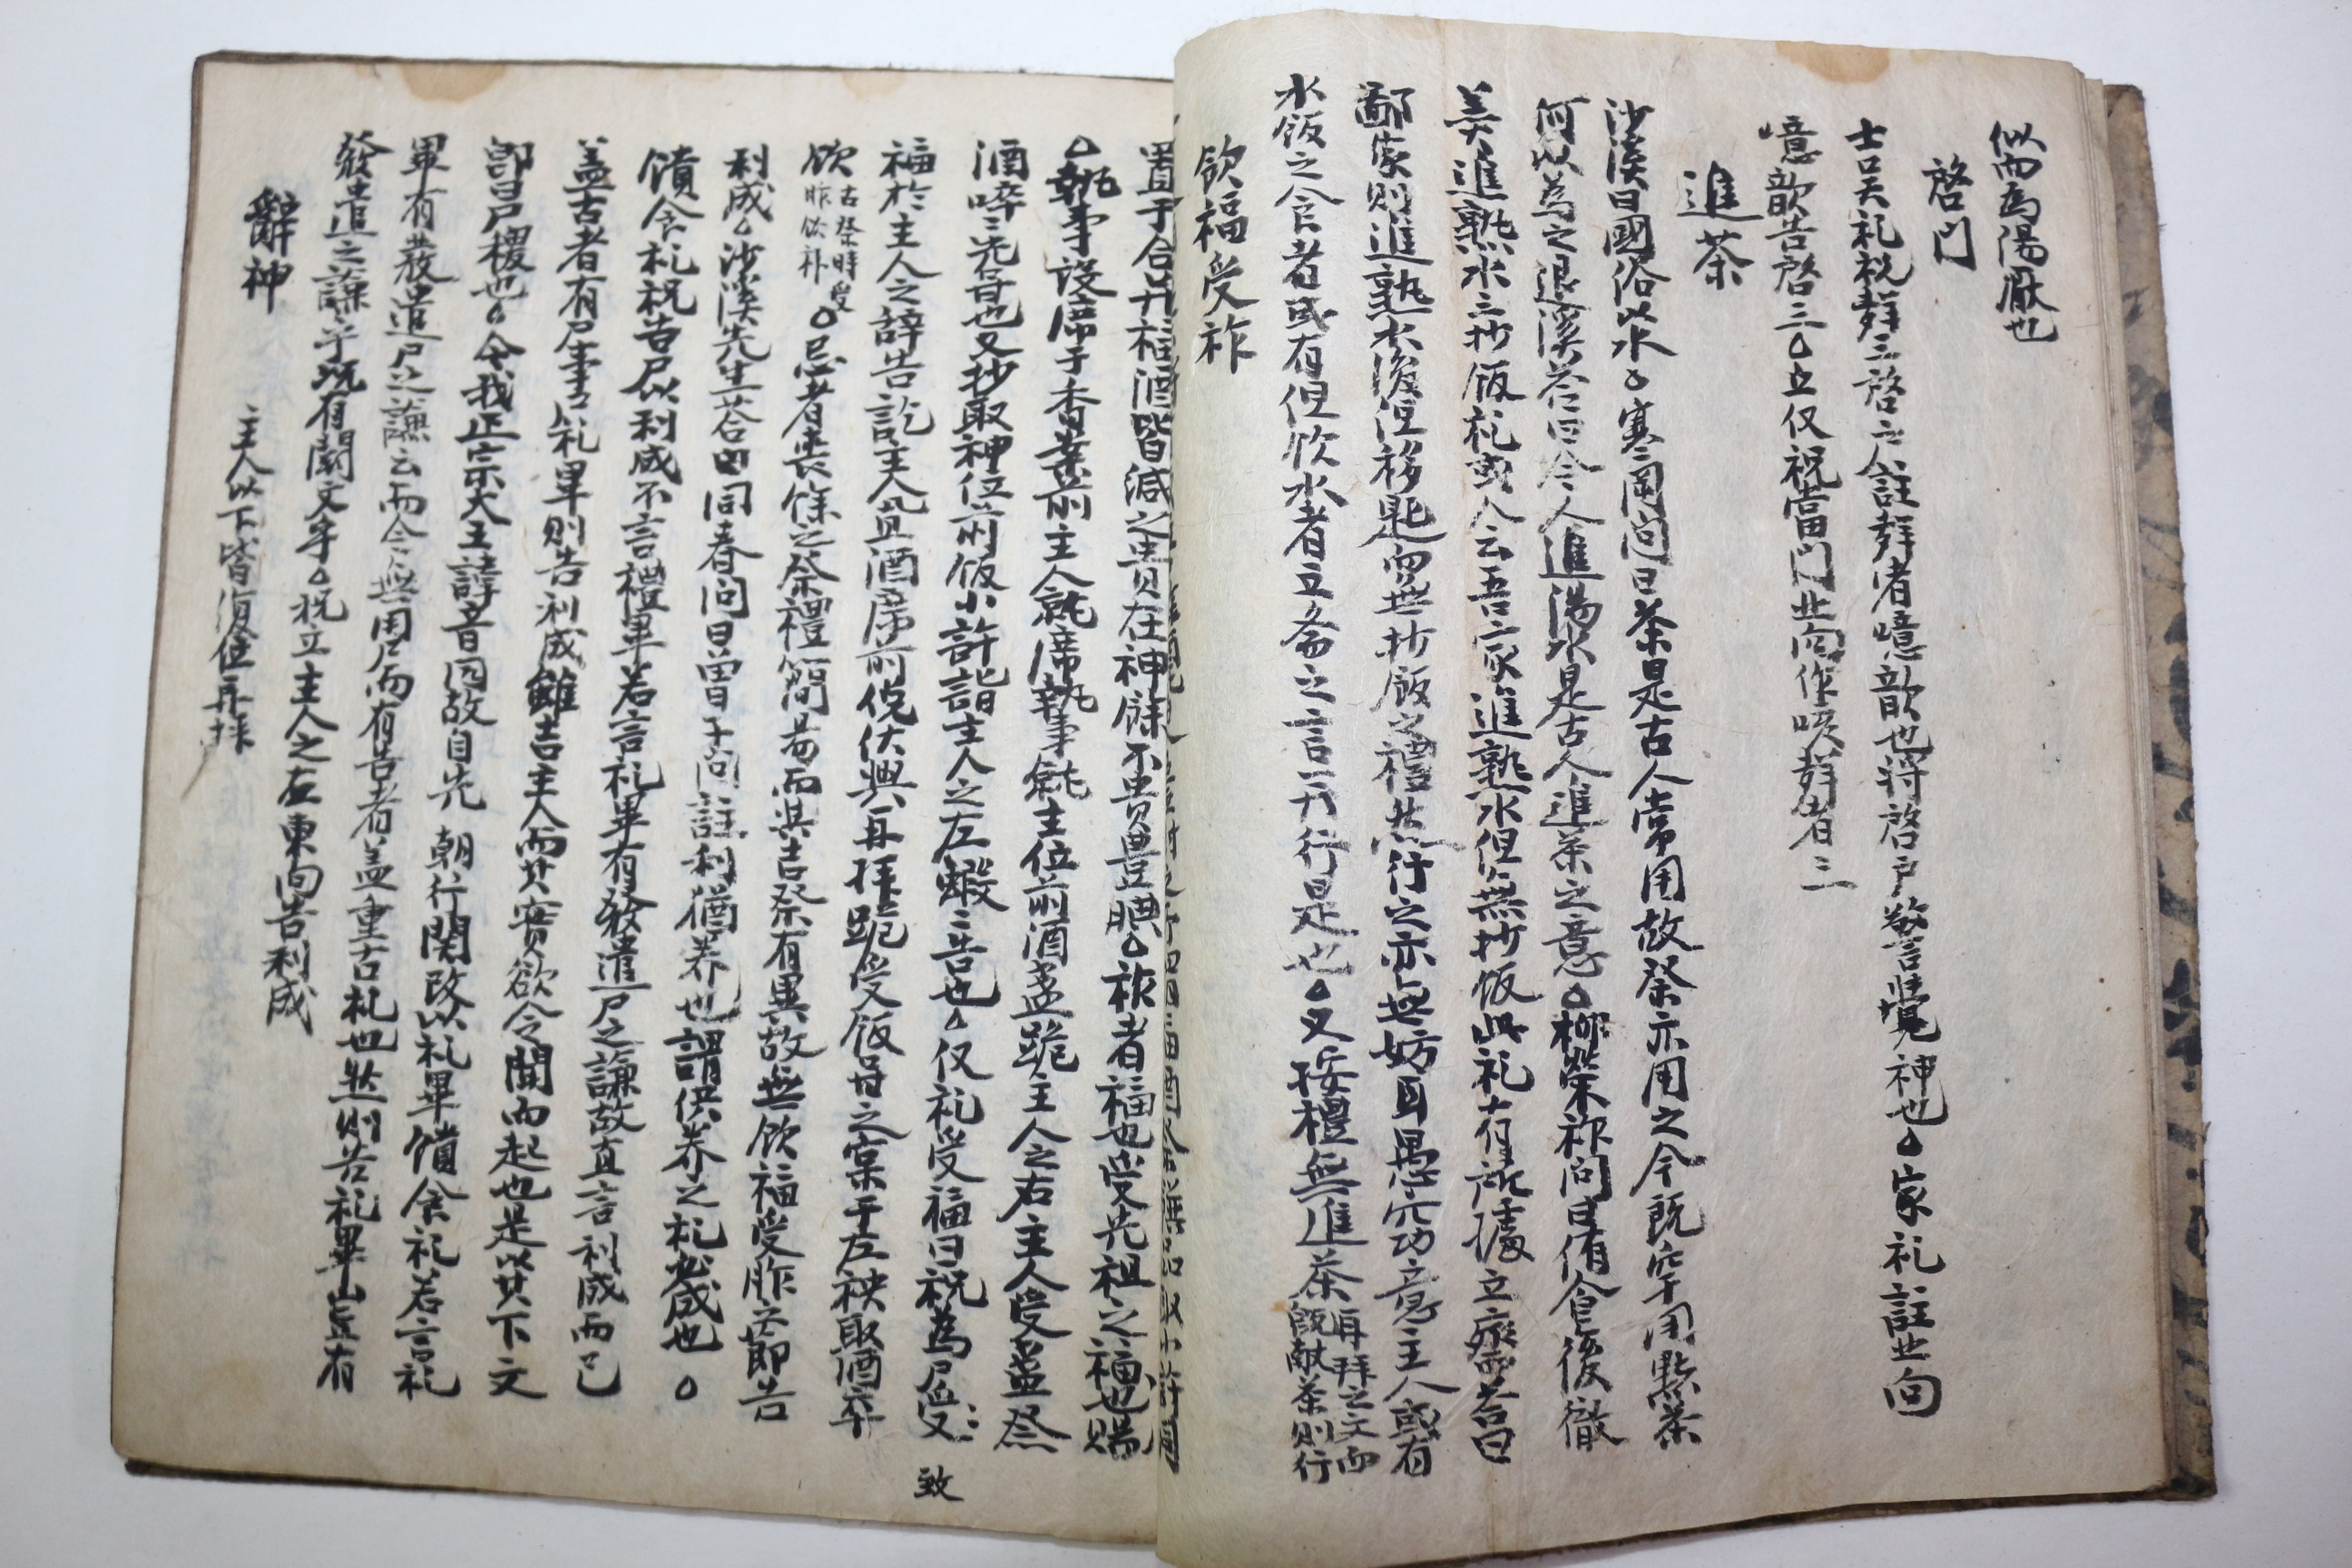 似而爲陽厭也
啓門
士吳礼祝聲三啓户註聲者噫歆也將啓户警覺神也○家礼註北向
噫歆告啓三○立仅祝當門北向作咳聲者三
進茶
沙溪曰國俗以水○寒岡問曰茶是古人常用故祭亦用之今既罕用點茶
何以爲之退溪答曰今人進湯水是古人進茶之意○柳榮祚問曰侑食後徹
羹進熟水三抄飯礼或人云吾家進熟水但無抄飯此礼有所據立齋答曰
鄙家則進熟水後但移匙而無抄飯之禮然行之亦無妨耳愚穴功意主人或有
水飯之食者或有但飮水者立斋之言可行是也○又按禮無進茶再拜之文而既献茶則行
飮福受祚
置于合并福酒皆減之貴在神餘不貴豊腆○祚者福也受先祖之福也賜
○執事設席于香案前主人就席執事就主位前酒盞跪主人之右主人受盞祭
酒啐之先甞也又抄取神位前飯小許詣主人之左嘏之告也○仅礼受福曰祝爲尸受
福於主人之辞告訖主人置酒席前俛伏興再拜跪受飯甘之棠于左袂取酒卒
飮古祭時受胙飮补○忌者喪餘之祭禮簡昜而與吉祭有異故無飮福受胙之節告
利成○沙溪先生答同春問曰曽子問註利猶养也謂供养之礼已成也○
饋食礼祝告尸以利成不言禮畢若言礼畢有發遣尸之謙故直言利成而已
盖古者有尸事尸礼畢則告利成雖告主人而其實欲令之聞而起也是以其下文
即曰尸稷也○令我正宗大王諱音同故自先 朝行関改以礼畢饋食礼若言礼
畢有發遣尸之謙云而今無用尸而有告者盖重古礼也然則告礼畢豈有
發遣之謙乎抗有闕文乎○祝立主人之左東向告利成
辭神 主人以下皆復位再拜
致